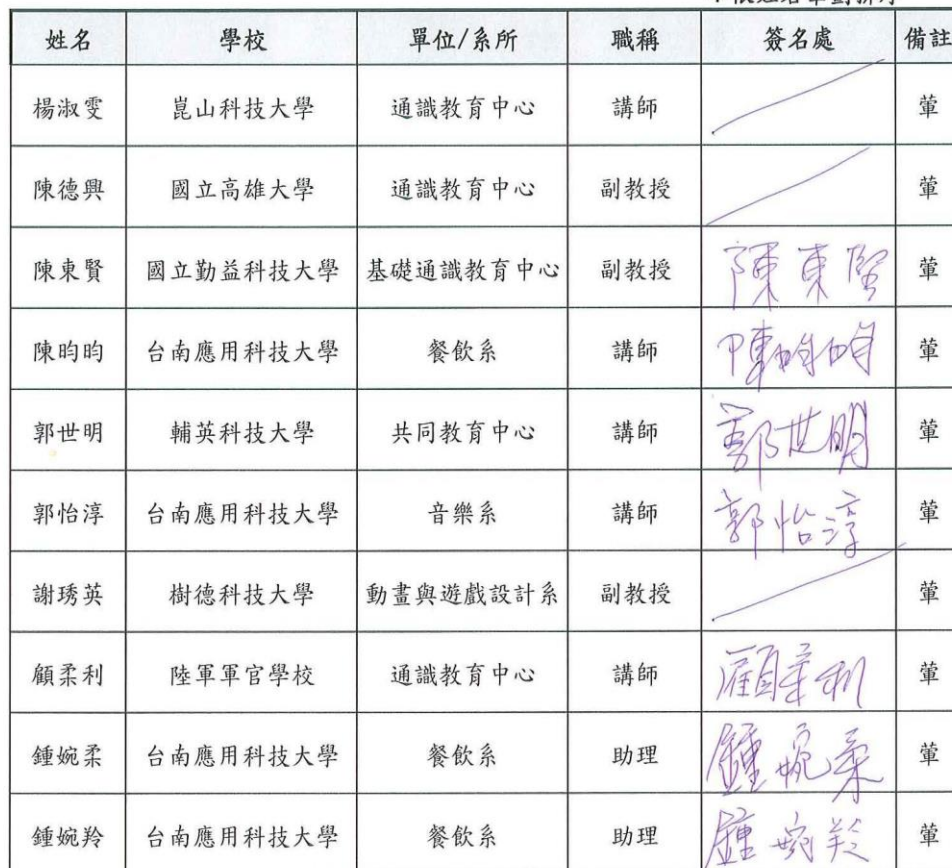 姓名 學校 單位/系所 職稱 簽名處 備註
楊淑雯 崑山科技大學 通識教育中心 講師 葷
陳德興 國立高雄大學 通識教育中心 副教授 葷
陳東賢 國立勤益科技大學 基礎通識教育中心 副教授 陳東賢 葷
陳昀昀 台南應用科技大學 餐飲系 講師 陳昀昀 葷
郭世明 輔英科技大學 共同教育中心 講師 郭世明 葷
郭怡淳 台南應用科技大學 音樂系 講師 郭怡淳 葷
謝琇英 樹德科技大學 動畫與遊戲設計系 副教授 葷
顧柔利 陸軍軍官學校 通識教育中心 講師 顧柔利 葷
鍾婉柔 台南應用科技大學 餐飲系 助理 鍾婉柔 葷
鍾婉羚 台南應用科技大學 餐飲系 助理 鍾婉羚 葷